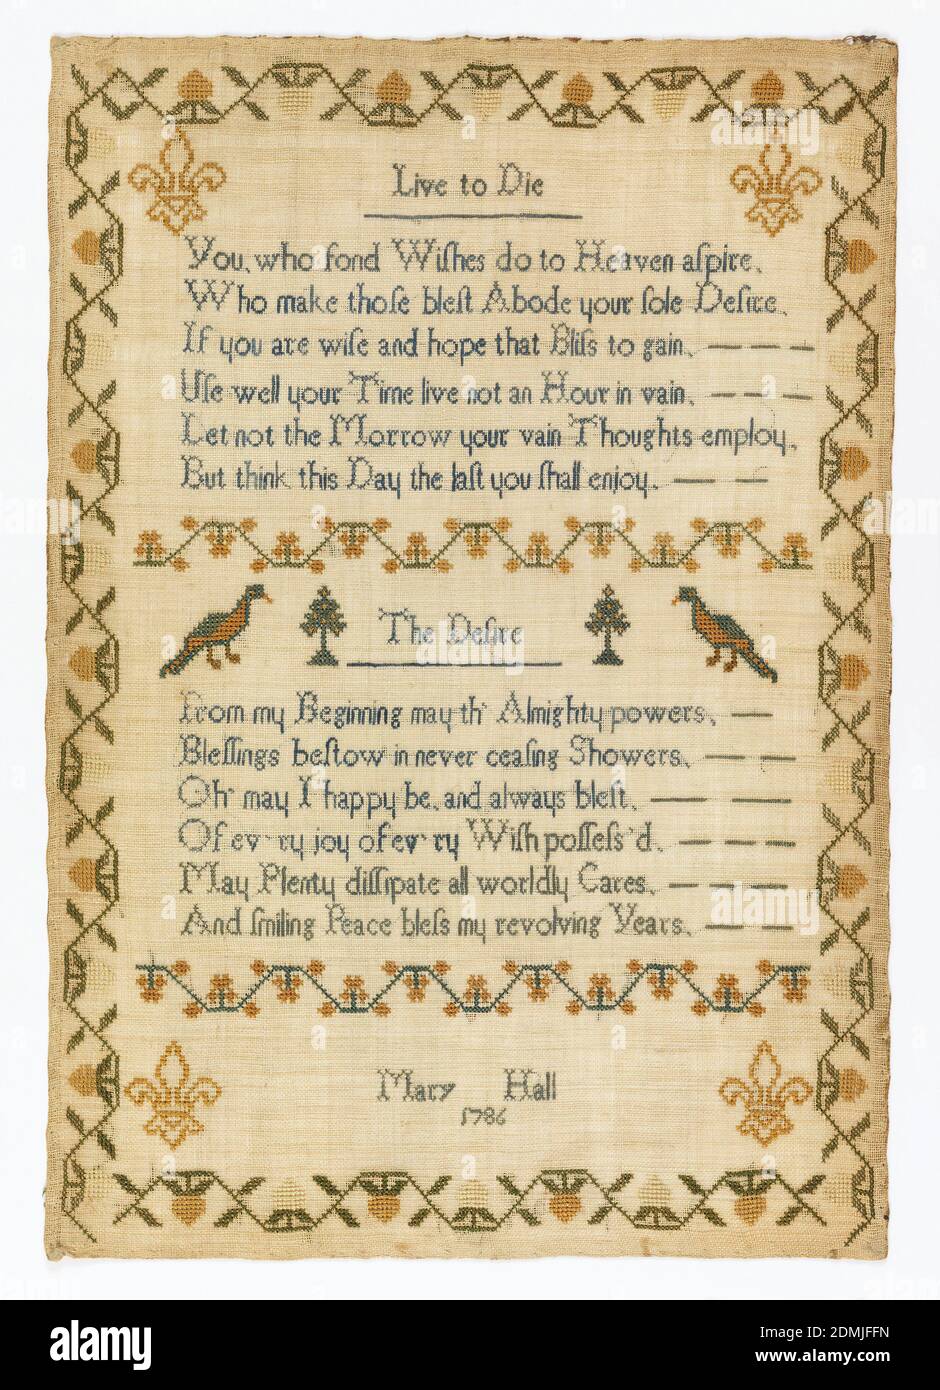 Live to Die
You, who fond Wiſhes do to Heaven aſpire,
Who make thoſe bleſt Abode your ſole Deſire,
If you are wiſe and hope that Bliſs to gain,
Uſe well your Time live not an Hour in vain,
Let not the Morrow your vain Thoughts employ,
But think this Day the laſt you ſhall enjoy.
The Deſire
From my Beginning may th' Almighty powers,
Bleſſings beſtow in never ceaſing Showers,
Oh' may I happy be, and always bleſt,
Of ev'ry joy of ev'ry Wiſh poſſeſs'd,
May Plenty diſſipate all worldly Cares,
And ſmiling Peace bleſs my revolving Years,
Mary Hall
1786
alamy
Image ID: 2DMJFFN
www.alamy.com